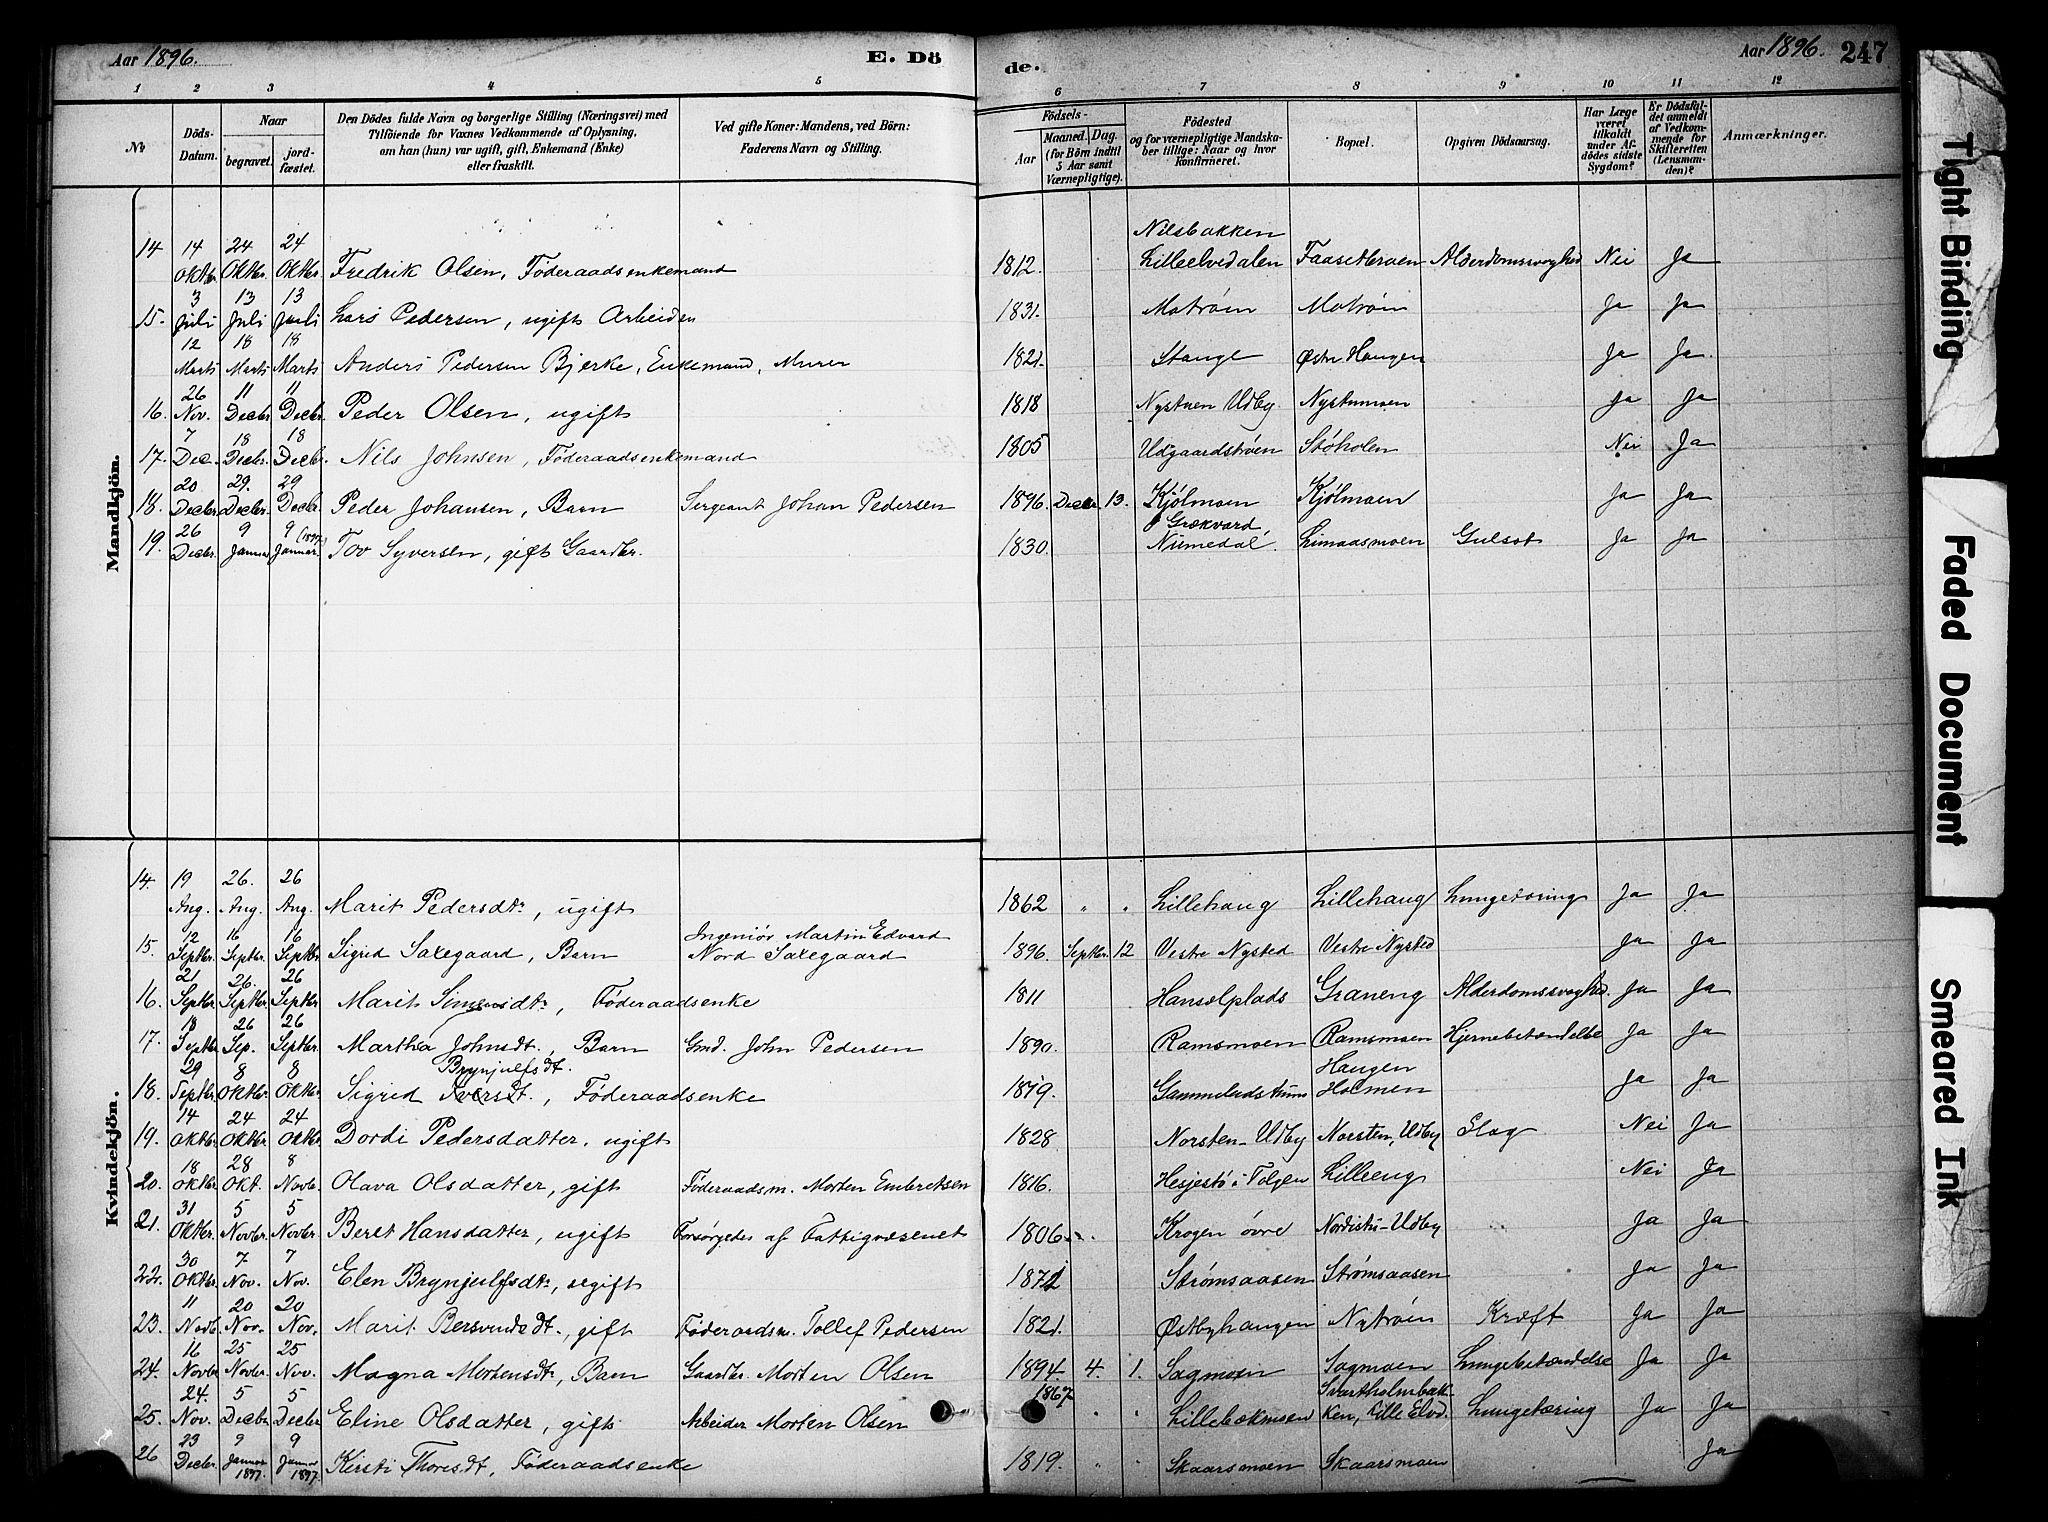 Aar 1896. E. Dö de. Aar 1896. 247
1 2 3 4 5 6 7 8 9 10 11 12
No Döds-Datum. Naar begravet. jordfæstet. Den Dödes fulde Navn og borgerlige Stilling (Næringsvei) med Tilföiende for Vaxnes Vedkommende af Oplysning, om han (hun) var ugift, gift, Enkemand (Enke) eller fraskilt. Ved gifte Koner: Mandens, ved Börn: Faderens Navn og Stilling. Födsels- Aar Maaned. Dag. (for Börn indtil 5 Aar samt Værnepligtige). Födested og for værnepligtige Mandskaber tillige: Naar og hvor Konfirmeret. Bopæl. Opgiven Dödsaarsag. Har Læge været tilkaldt under Afdödes sidste Sygdom? Er Dödsfaldet anmeldt af Vedkommende for Skifteretten (Lensmanden)? Anmærkninger.
Mandkjön.
14 14 Oktbr. 24 Oktbr. 24 Oktbr. Fredrik Olsen, Føderaadsenkemand 1812. Nilsbakken Lilleelvedalen Faasetkroen Alderdomssvaghed Nei Ja
15. 3 Juli 13 Juli 13 Juli Lars Pedersen, ugift Arbeider 1831. Motrøen Motrøen Ja Ja
12 Marts 18 Marts 18 Marts Anders Pedersen Bjerke, Enkemand, Murer 1821. Stange Østre Haugen Ja Ja.
16. 26 Nov. 11 Decbr. 11 Decbr. Peder Olsen, ugift 1818 Nystuen Udby. Nystumoen Ja Ja
17. 7 Dec. 18 Decbr. 18 Decbr. Nils Johnsen, Føderaadsenkemand 1805 Udgaardstrøen Støholen Nei Ja
18. 20 Decbr. 29. Decbr. 29 Decbr. Peder Johansen, Barn Sergeant Johan Pedersen 1896 Decbr. 13. Kjølmoen Kjølmoen Ja Ja
19. 26 Decbr. 9 Januar 9 (1897) Januar. Tov Syversen, gift Gaardbr. 1830. Grækvard Numedal Limaadsmoen Gulsot Ja Ja
Kvindekjön.
14. 19 Aug. 26. Aug. 26 Aug. Marit Pedersdtr, ugift 1862 " " Lillehaug Lillehaug Lungetæring Ja Ja
15. 12 Septbr. 16 Septbr. 16 Septbr. Sigrid Saxegaard, Barn Ingeniør Martin Edvard Nord Saxegaard 1896. Septbr. 12 Vestre Nysted Vestre Nysted Ja Ja
16. 21 Septbr. 26. Septbr. 26 Septbr. Marit Simensdtr, Føderaadsenke 1811 Hanselplads Graneng Alderdomssvaghed. Ja Ja
17. 18 Septbr. 26 Sep. 26 Septbr. Martha Johnsdt., Barn Gmd. John Pedersen 1890. Ramsmoen Ramsmoen Hjernebetændelse Ja Ja
18. 29 Septbr. 8 Oktbr. 8 Oktbr. Brynjulfsdt. Sigrid Iversdt., Føderaadsenke 1819. Gammelaadstuen Haugen Holmen Ja Ja
19. 14 Oktbr. 24 Oktbr. 24 Oktbr. Dordi Pedersdatter, ugift 1828 Norsten-Udby Norsten, Udby Slag Nei Ja
20. 18 Oktbr. 28 Okt. 8 Novbr. Olava Olsdatter, gift Føderaadsm. Morten Embretsen 1816. Hesjestø i Tolgen Lilleeng Nei Ja
21. 31 Oktbr. 5 Novbr. 5 Novbr. Beret Hansdatter, ugift Forsørgedes af Fattigvæsenet 1806. Krogen øvre Nordistu-Udby Ja Ja
22. 30 Oktbr. 7 Nov. 7 Nov. Elen Brynjulfsdtr, ugift 1872 Strømsaasen Strømsaasen Ja Ja
23. 11 Novb. 20 Nov. 20 Nov. Marit Persvendsdt., gift Føderaadsm. Tollef Pedersen 1821. Østbyhaugen Nytrøen Kræft Ja Ja
24. 16 Novbr 25 Novbr. 25 Nov. Magna Mortensdtr, Barn Gaardbr. Morten Olsen 1894. 4. 1. Sagmoen Sagmoen Lungebetændelse Ja Ja
25. 24. Nov. 5 Decbr 5 Decbr Eline Olsdatter, gift Arbeider Morten Olsen 1867 " " Lillebækmoen Svartholmbakken, Lille Elvd. Lungetæring Ja Ja
26 23 Decbr. 9 Januar 1897. 9 Januar 1897. Kirsti Thoresdt, Føderaadsenke 1819. " " Skaarsmoen Skaarsmoen Ja
Tight Binding
Faded Document
Smeared Ink